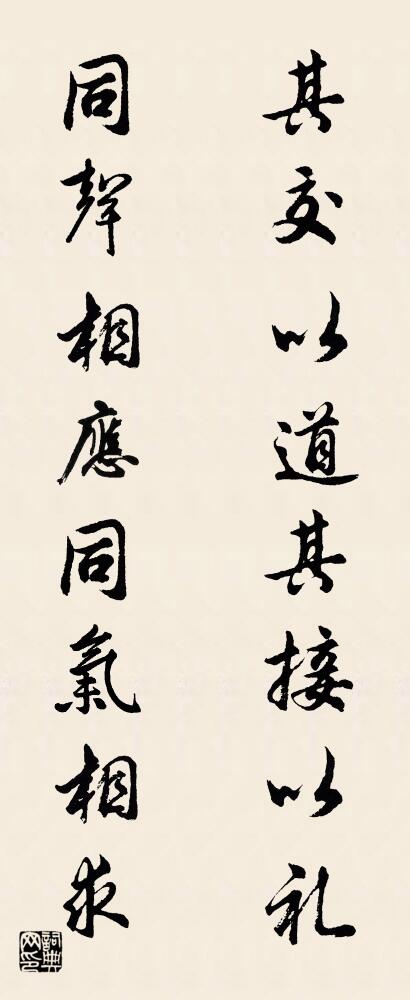 其交以道其接以礼
同聲相應同氣相求
詞典网印